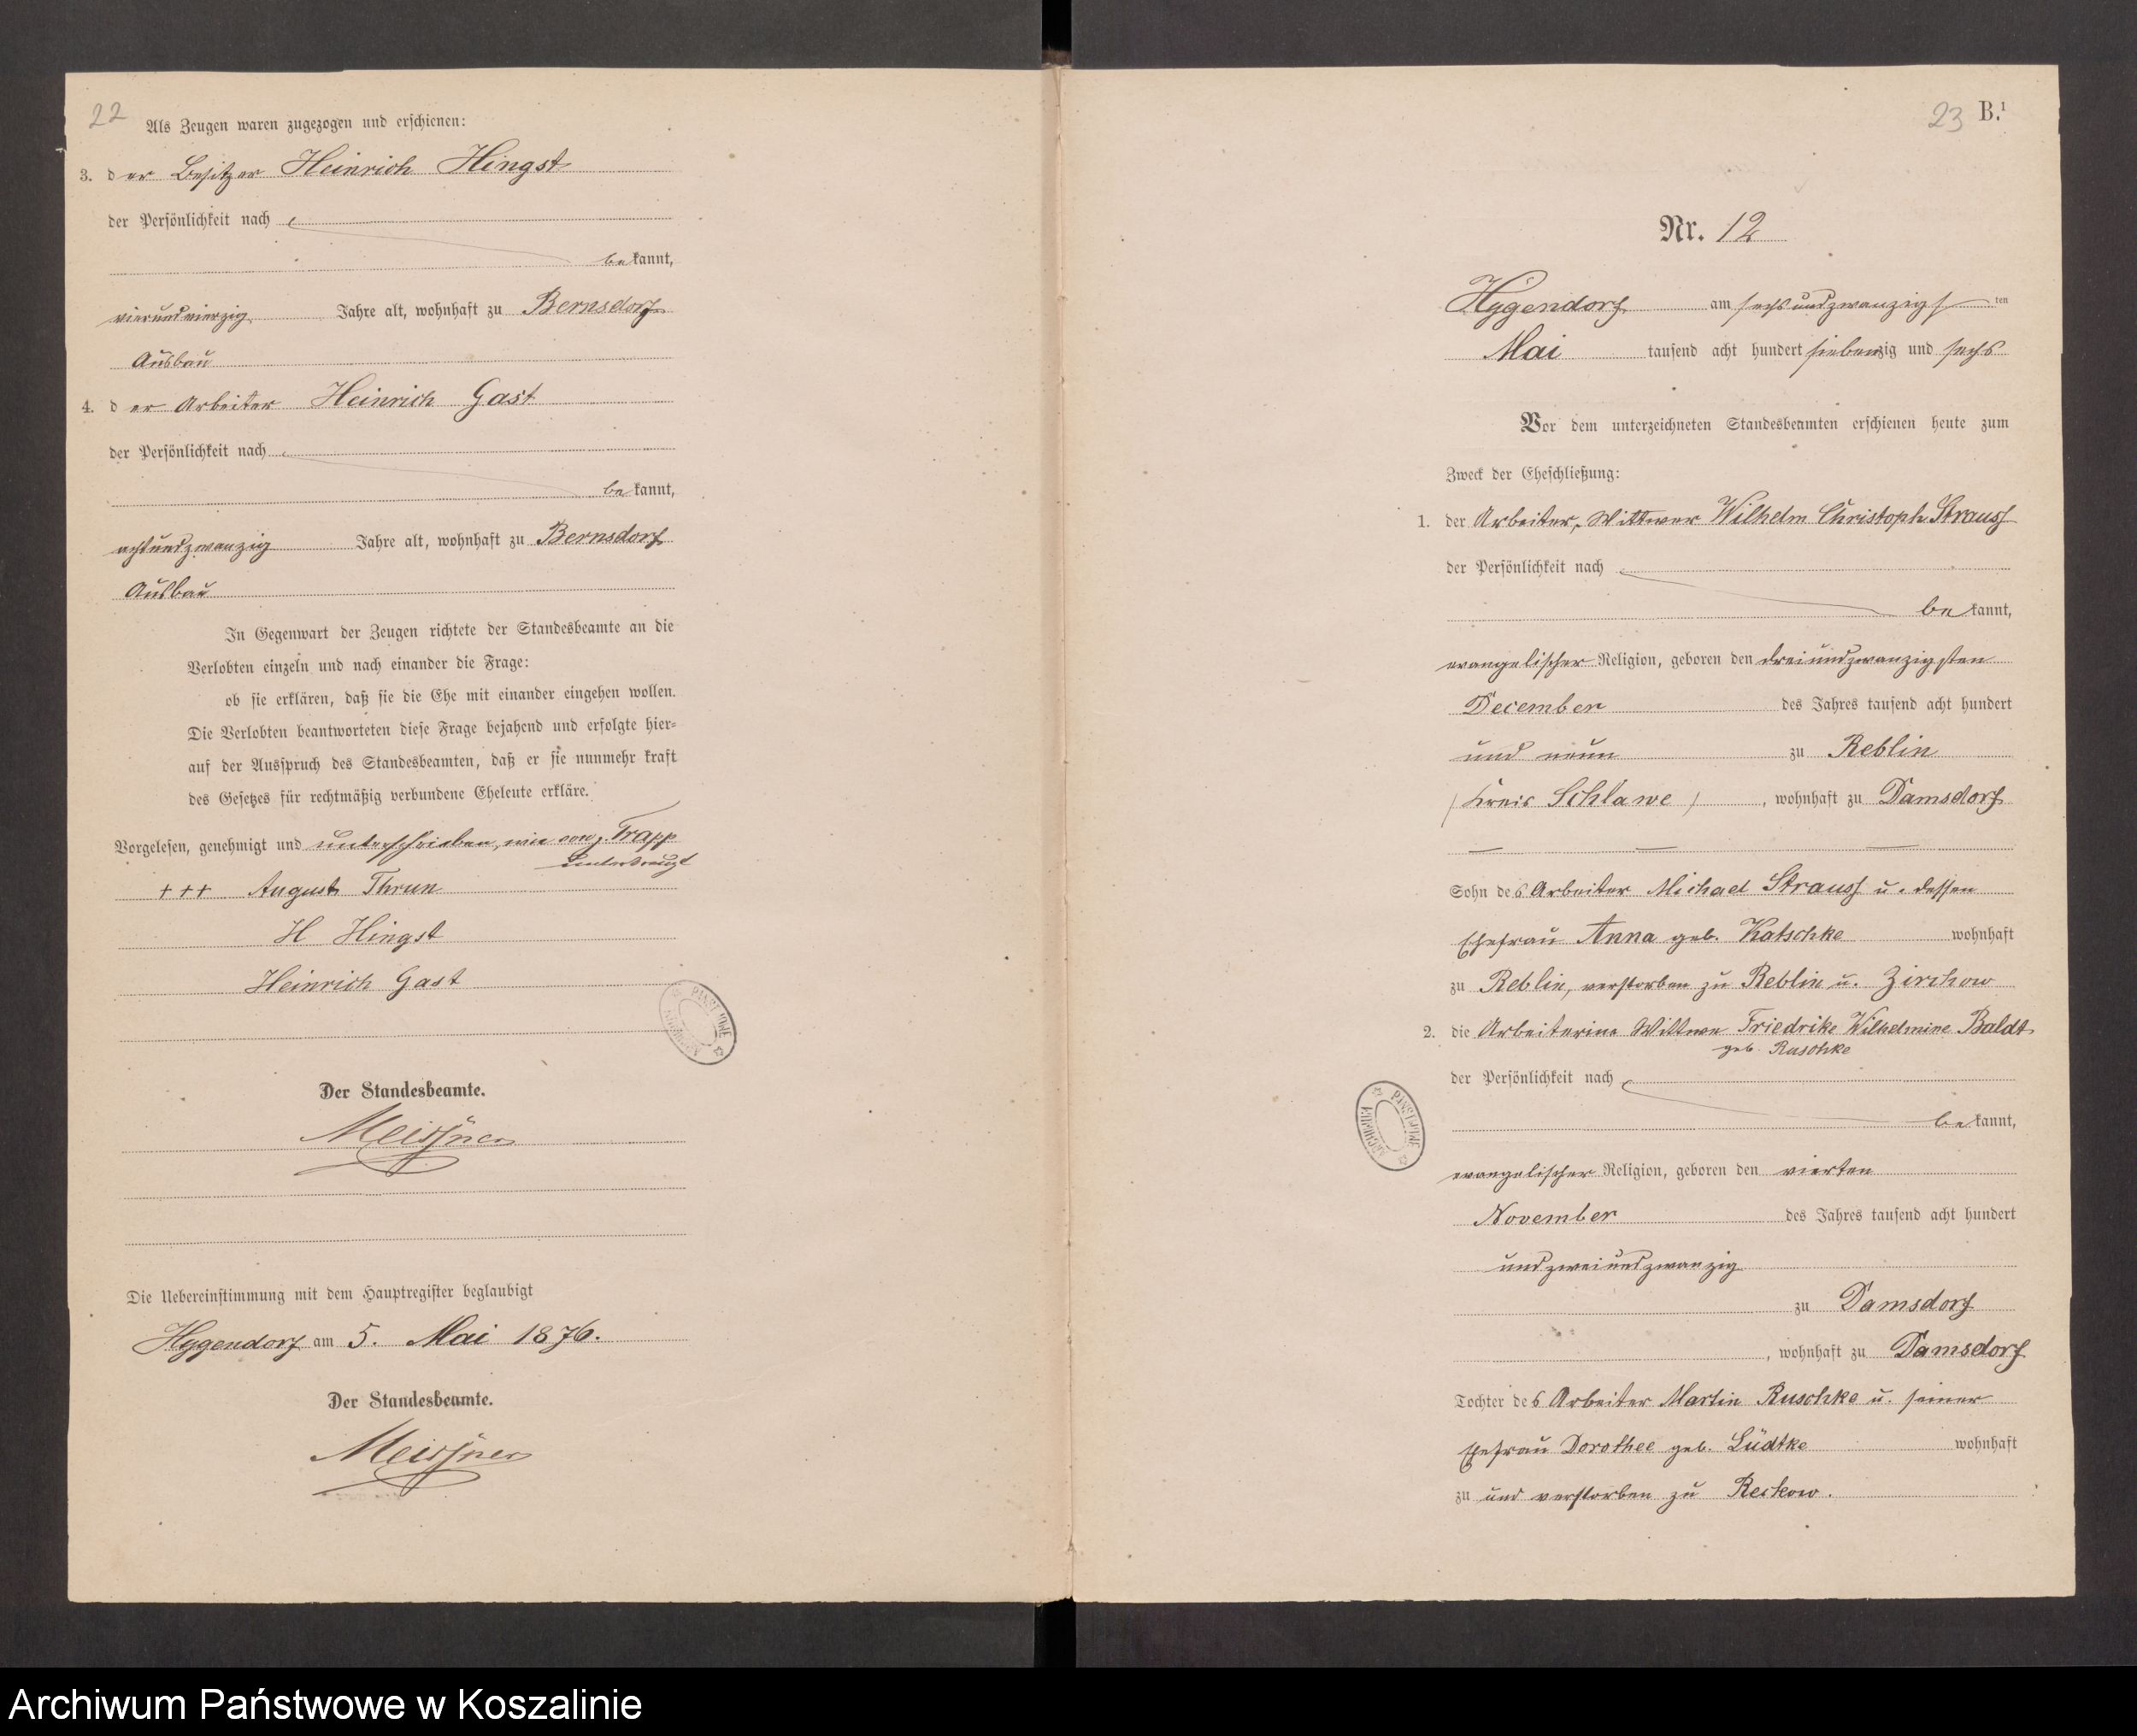 22
Als Zeugen waren zugezogen und erschienen:
3. der Besitzer Heinrich Hingst
der Persönlichkeit nach
bekannt,
vierundvierzig Jahre alt, wohnhaft zu Bernsdorf
Ausbau
4. der Arbeiter Heinrich Gast
der Persönlichkeit nach
bekannt,
achtundzwanzig Jahre alt, wohnhaft zu Bernsdorf
Ausbau
In Gegenwart der Zeugen richtete der Standesbeamte an die
Verlobten einzeln und nach einander die Frage:
ob sie erklären, daß sie die Ehe mit einander eingehen wollen.
Die Verlobten beantworteten diese Frage bejahend und erfolgte hier-
auf der Ausspruch des Standesbeamten, daß er sie nunmehr kraft
des Gesetzes für rechtmäßig verbundene Eheleute erkläre.
Vorgelesen, genehmigt und unterschrieben, Trapp
unterkreuzt
+++ August Thrun
H Hingst
Heinrich Gast
Der Standesbeamte.
Meissner
Die Uebereinstimmung mit dem Hauptregister beglaubigt
Hygendorf am 5. Mai 1876.
Der Standesbeamte.
Meissner
23 B.1
Nr. 12
Hygendorf am sechsundzwanzigsten
Mai tausend acht hundert siebenzig und sechs
Vor dem unterzeichneten Standesbeamten erschienen heute zum
Zweck der Eheschließung:
1. der Arbeiter, Wittwer Wilhelm Christoph Strauss
der Persönlichkeit nach
bekannt,
evangelischer Religion, geboren den dreiundzwanzigsten
December des Jahres tausend acht hundert
und neun zu Reblin
(Kreis Schlawe), wohnhaft zu Damsdorf
Sohn des Arbeiter Michael Strauss u. dessen
Ehefrau Anna geb. Katschke wohnhaft
zu Reblin, verstorben zu Reblin u. Zirchow
2. die Arbeiterin Wittwe Friedrike Wilhelmine Baldt
geb. Ruschke
der Persönlichkeit nach
bekannt,
evangelischer Religion, geboren den vierten
November des Jahres tausend acht hundert
und zweiundzwanzig
zu Damsdorf
, wohnhaft zu Damsdorf
Tochter des Arbeiter Martin Ruschke u. seiner
Ehefrau Dorothee geb. Lüdtke wohnhaft
zu und verstorben zu Reckow.
ARCHIWUM PAŃSTWOWE
Archiwum Państwowe w Koszalinie